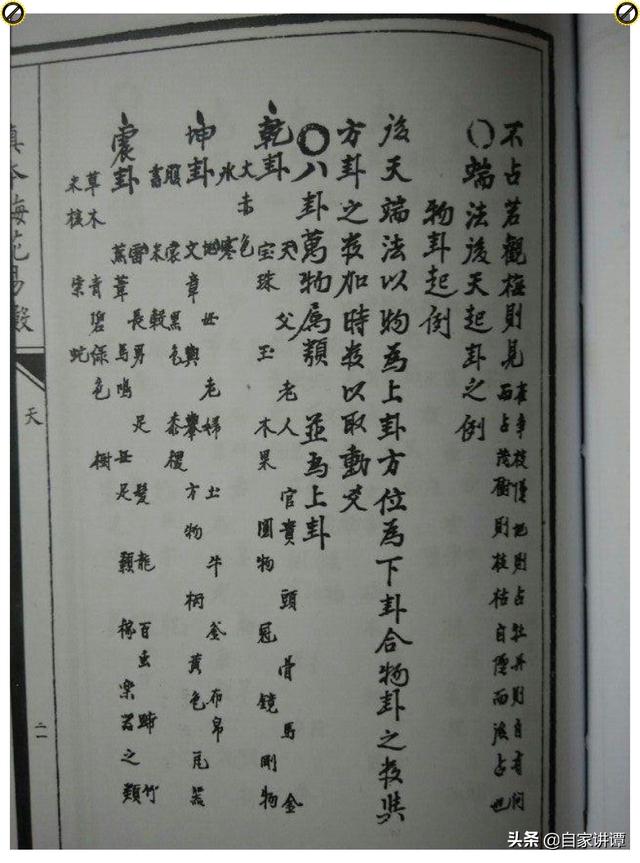 不占若觀梅則見
雀爭枝墜地則占牡丹則自有問
而占茂樹則枝枯自墜而後占也
○端法後天起卦之例
物卦起例
後天端法以物為上卦方位為下卦合物卦之数與
方卦之数加時数以取動爻
○八卦萬物属類 並為上卦
乾卦
天 父 老人 官貴 頭 骨 馬 金
寶珠 玉 木果 圓物 冠 鏡 剛物
大赤色
水寒
坤卦
地 母 老婦 土 牛 釜 布帛
文章 輿 方物 柄 黄色 瓦器
腹 裳 黑色 黍稷
書 米 穀
震卦
雷 長男 足 髮 龍 百虫 蹄 竹
萑葦 馬鳴 母足 顙 稼 樂器之類
草木 青碧緑色 樹
木核 柴 蛇
真本梅花易數
天
二一
头条 @自家讲谭